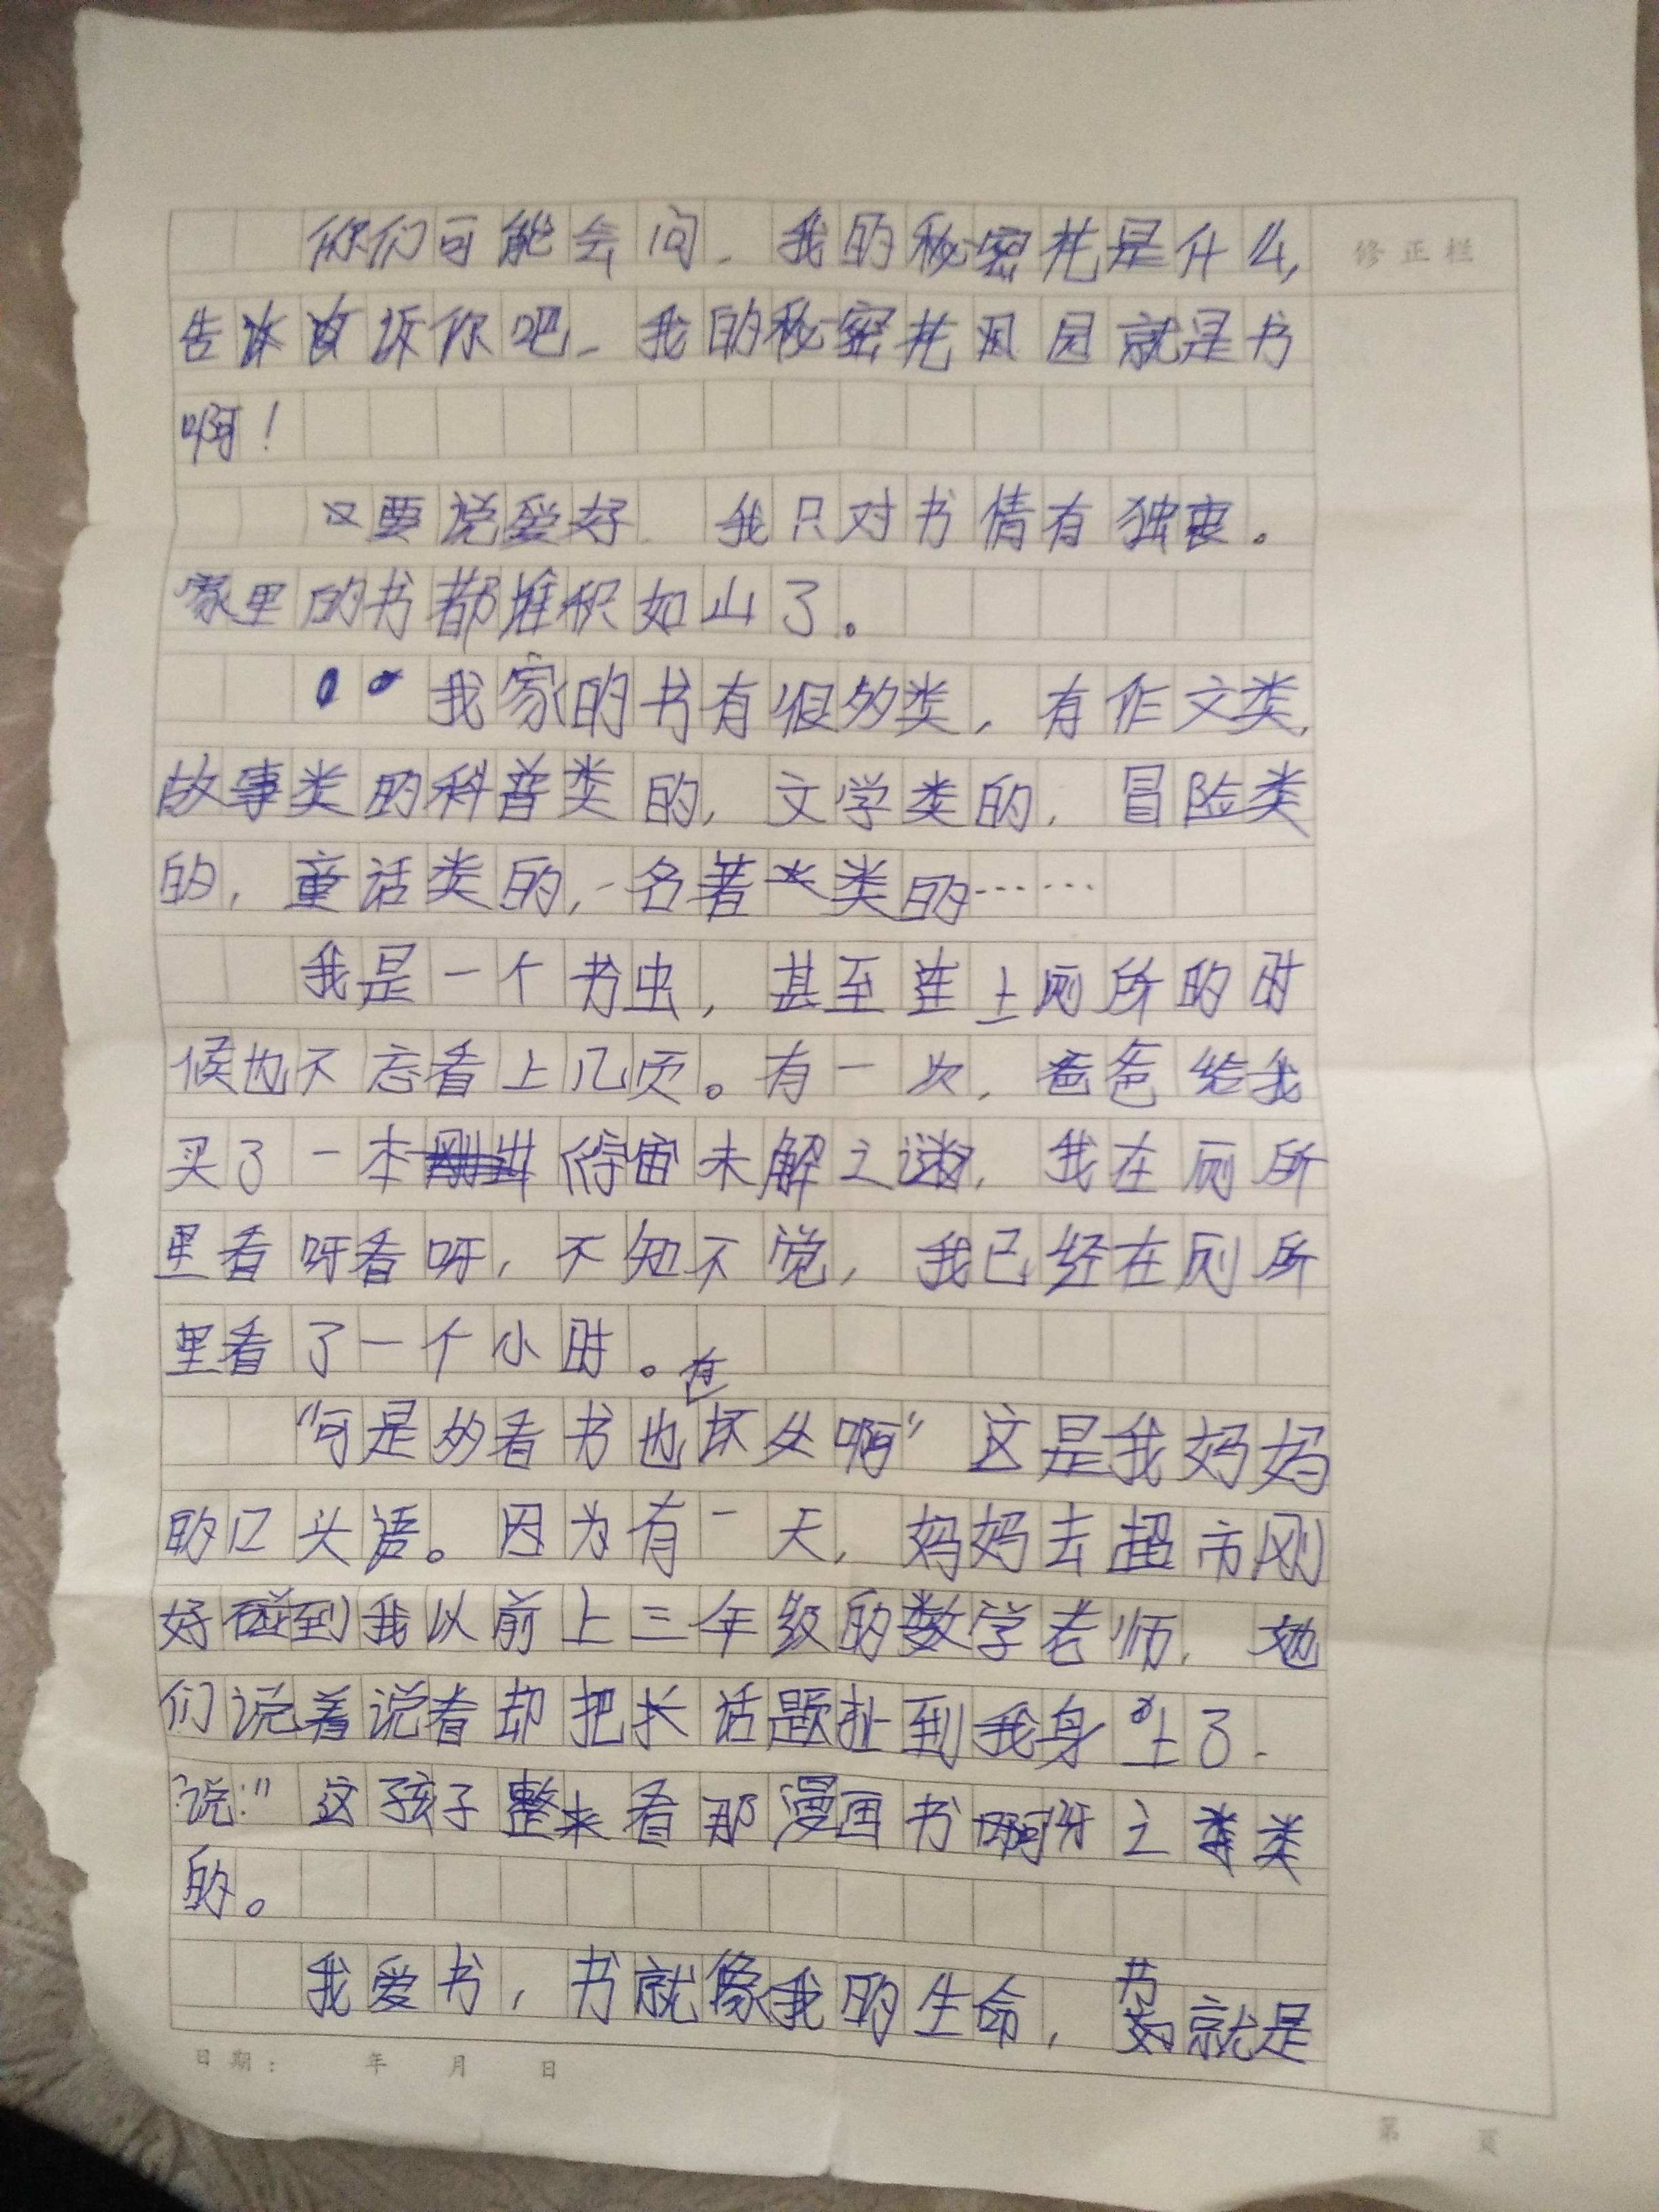 你们可能会问，我的秘密花是什么，
告诉你吧，我的秘密花园就是书
啊！
要说爱好，我只对书情有独衷。
家里的书都堆积如山了。
我家的书有很多类，有作文类，
故事类的科普类的，文学类的，冒险类
的，童话类的，名著类的……
我是一个书虫，甚至连上厕所的时
候也不忘看上几页。有一次，爸爸给我
买了一本宇宙未解之谜，我在厕所
里看呀看呀，不知不觉，我已经在厕所
里看了一个小时。
“可是多看书也有坏处啊”这是我妈妈
的口头语。因为有一天，妈妈去超市刚
好碰到我以前上三年级的数学老师，她
们说着说着却把话题扯到我身上了。
说：“这孩子整来看那漫画书啊呀之类
的。
我爱书，书就像我的生命，书就是
修正栏
日期： 年 月 日
第 页